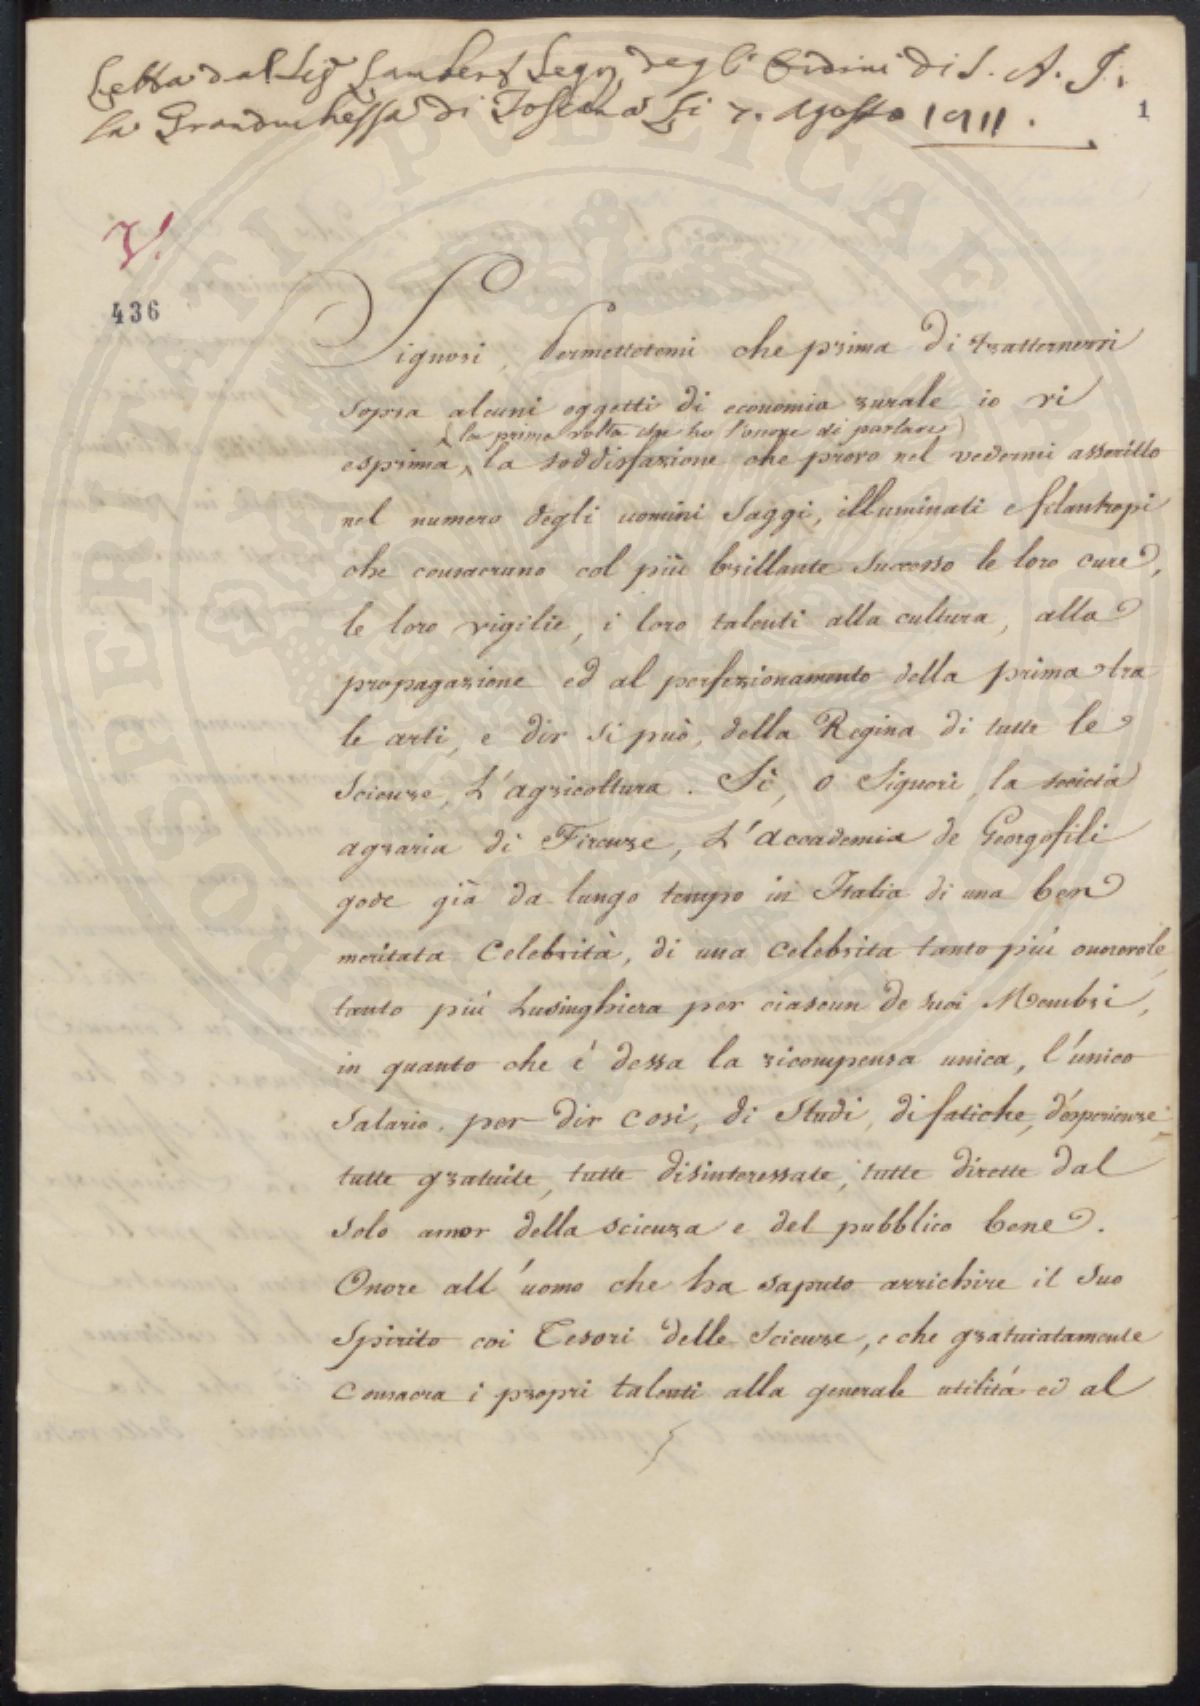 Letta dal Sig.r Lambert Seg.o degli Ordini di S. A. I.
la Granduchessa di Toscana Li 7. Agosto 1811.
1
V.
436
Signori, Permettetemi che prima di trattenervi
sopra alcuni oggetti di economia rurale io vi
(la prima volta che ho l'onore di parlare)
esprima, la soddisfazione che provo nel vedermi ascritto
nel numero degli uomini Saggi, illuminati e filantropi
che consacrano col più brillante Successo le loro cure,
le loro vigilie, i loro talenti alla cultura, alla
propagazione ed al perfezionamento della prima tra
le arti, e dir si può, della Regina di tutte le
Scienze, L'agricoltura. Sì, o Signori, la società
agraria di Firenze, L'Accademia de Georgofili
gode già da lungo tempo in Italia di una ben
meritata Celebrità, di una Celebrita tanto più onorevole,
tanto più Lusinghiera per ciascun de suoi Membri,
in quanto che è dessa la ricompensa unica, l'unico
Salario, per dir così, di Studi, di fatiche, d'esperienze
tutte gratuite, tutte disinteressate, tutte dirette dal
solo amor della scienza e del pubblico bene.
Onore all'uomo che ha saputo arrichire il Suo
Spirito coi Tesori delle Scienze, e che gratuiatamente
Consacra i propri talenti alla generale utilità ed al